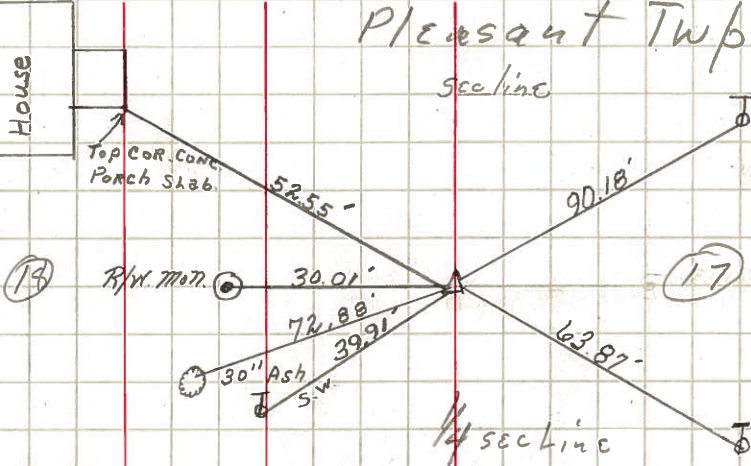 Pleasant Twp
House
sec line
Top COR. CONC.
PORCH SLAB.
52.55'
90.18'
18
R/W. MON.
30.01'
17
72.88'
39.91'
63.87'
30" Ash
S-W
1/4 sec Line